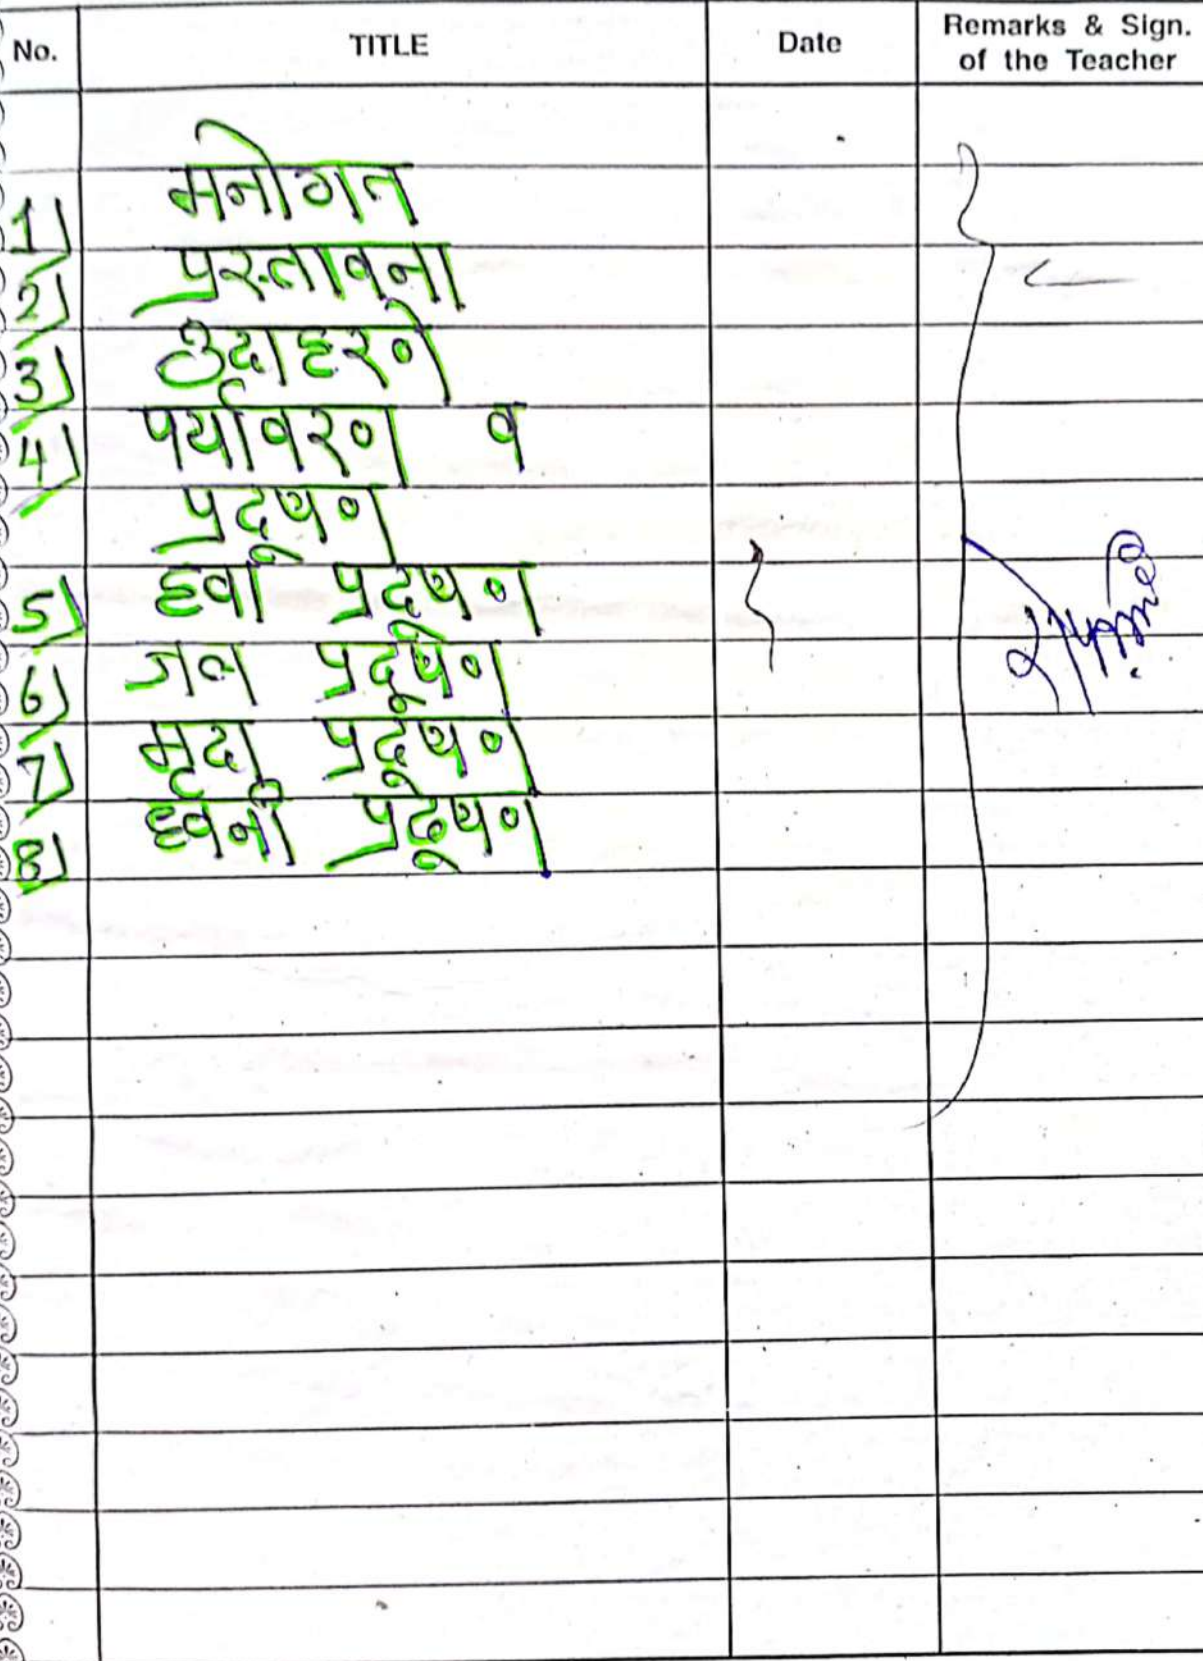 No. TITLE Date Remarks & Sign. of the Teacher
1] मनोगत
2] प्रस्तावना
3] उदाहरणे
4] पर्यावरण व
प्रदूषण
5] हवा प्रदूषण
6] जल प्रदूषण
7] मृदा प्रदूषण
8] ध्वनी प्रदूषण